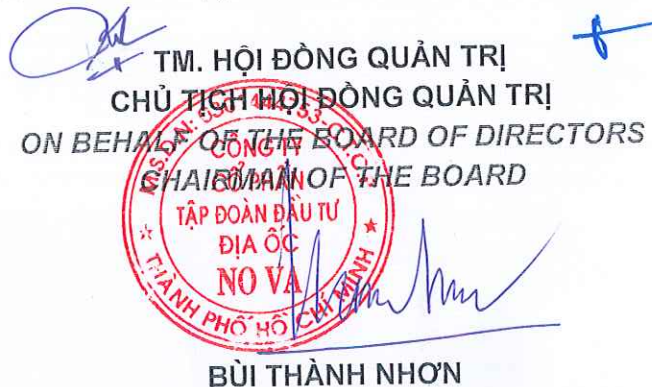 TM. HỘI ĐỒNG QUẢN TRỊ
CHỦ TỊCH HỘI ĐỒNG QUẢN TRỊ
ON BEHALF OF THE BOARD OF DIRECTORS
CHAIRMAN OF THE BOARD
M.S.D.N:
CÔNG TY
CỔ PHẦN
TẬP ĐOÀN ĐẦU TƯ
ĐỊA ỐC
NO VA
THÀNH PHỐ HỒ CHÍ MINH
BÙI THÀNH NHƠN